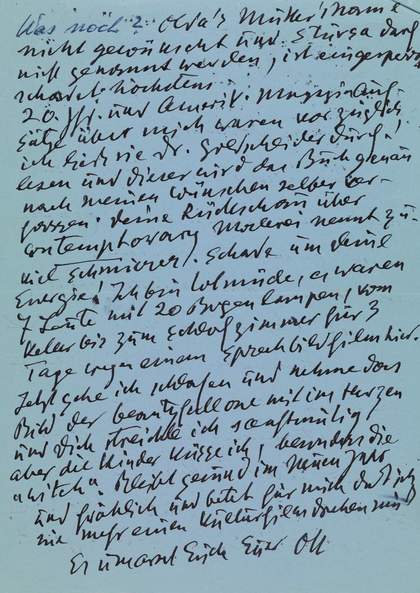 Was noch? Olda's Mutter's Name
nicht gewünscht und Sturga darf
nicht genannt werden, ist eingesperrt
schade höchstens
20. Jh. und Amerik. Magazin Auf-
sätze über mich waren vorzüglich
ich ließ sie Dr. Goldscheider durch-
lesen und dieser wird das Buch genau
nach meinen Wünschen selber ver-
fassen. Deine Rückschau über
contemporary Malerei nennt zu-
viel Schmierer. Schade um deine
Energie! Ich bin todmüde, es waren
7 Leute mit 20 Bogenlampen, vom
Keller bis zum Schlafzimmer für 3
Tage wegen einem Sprechbildfilm hier.
Jetzt gehe ich schlafen und nehme das
Bild der beautyfull one mit im Herzen
und dich streichle ich sanftmütig
aber die Kinder küsse ich, besonders die
"witch". Bleibt gesund im Neuen Jahr
und fröhlich und betet für mich daß ich
nie mehr einen Kulturfilm machen muß
Es umarmt Euch Euer OK